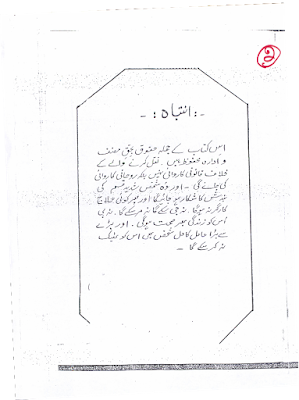 -: انتباہ :-
اس کتاب کے جملہ حقوق بحق مصنف
و ادارہ محفوظ ہیں۔ نقل کرنے والے کے
خلاف قانونی کاروائی نہیں بلکہ روحانی کاروائی
کی جائے گی ۔ اور وہ شخص شدید قسم کی
بندش کا شکار ہو جائے گا اور پھر کوئی علاج
کارگر نہ ہوگا۔ نہ جی سکے گا نہ مر سکے گا۔ نہ ہی
اس کو زندگی بھر صحت ہوگی ۔ اور بڑے
سے بڑا عامل کامل شخص بھی اس کو ٹھیک
نہ کر سکے گا ۔